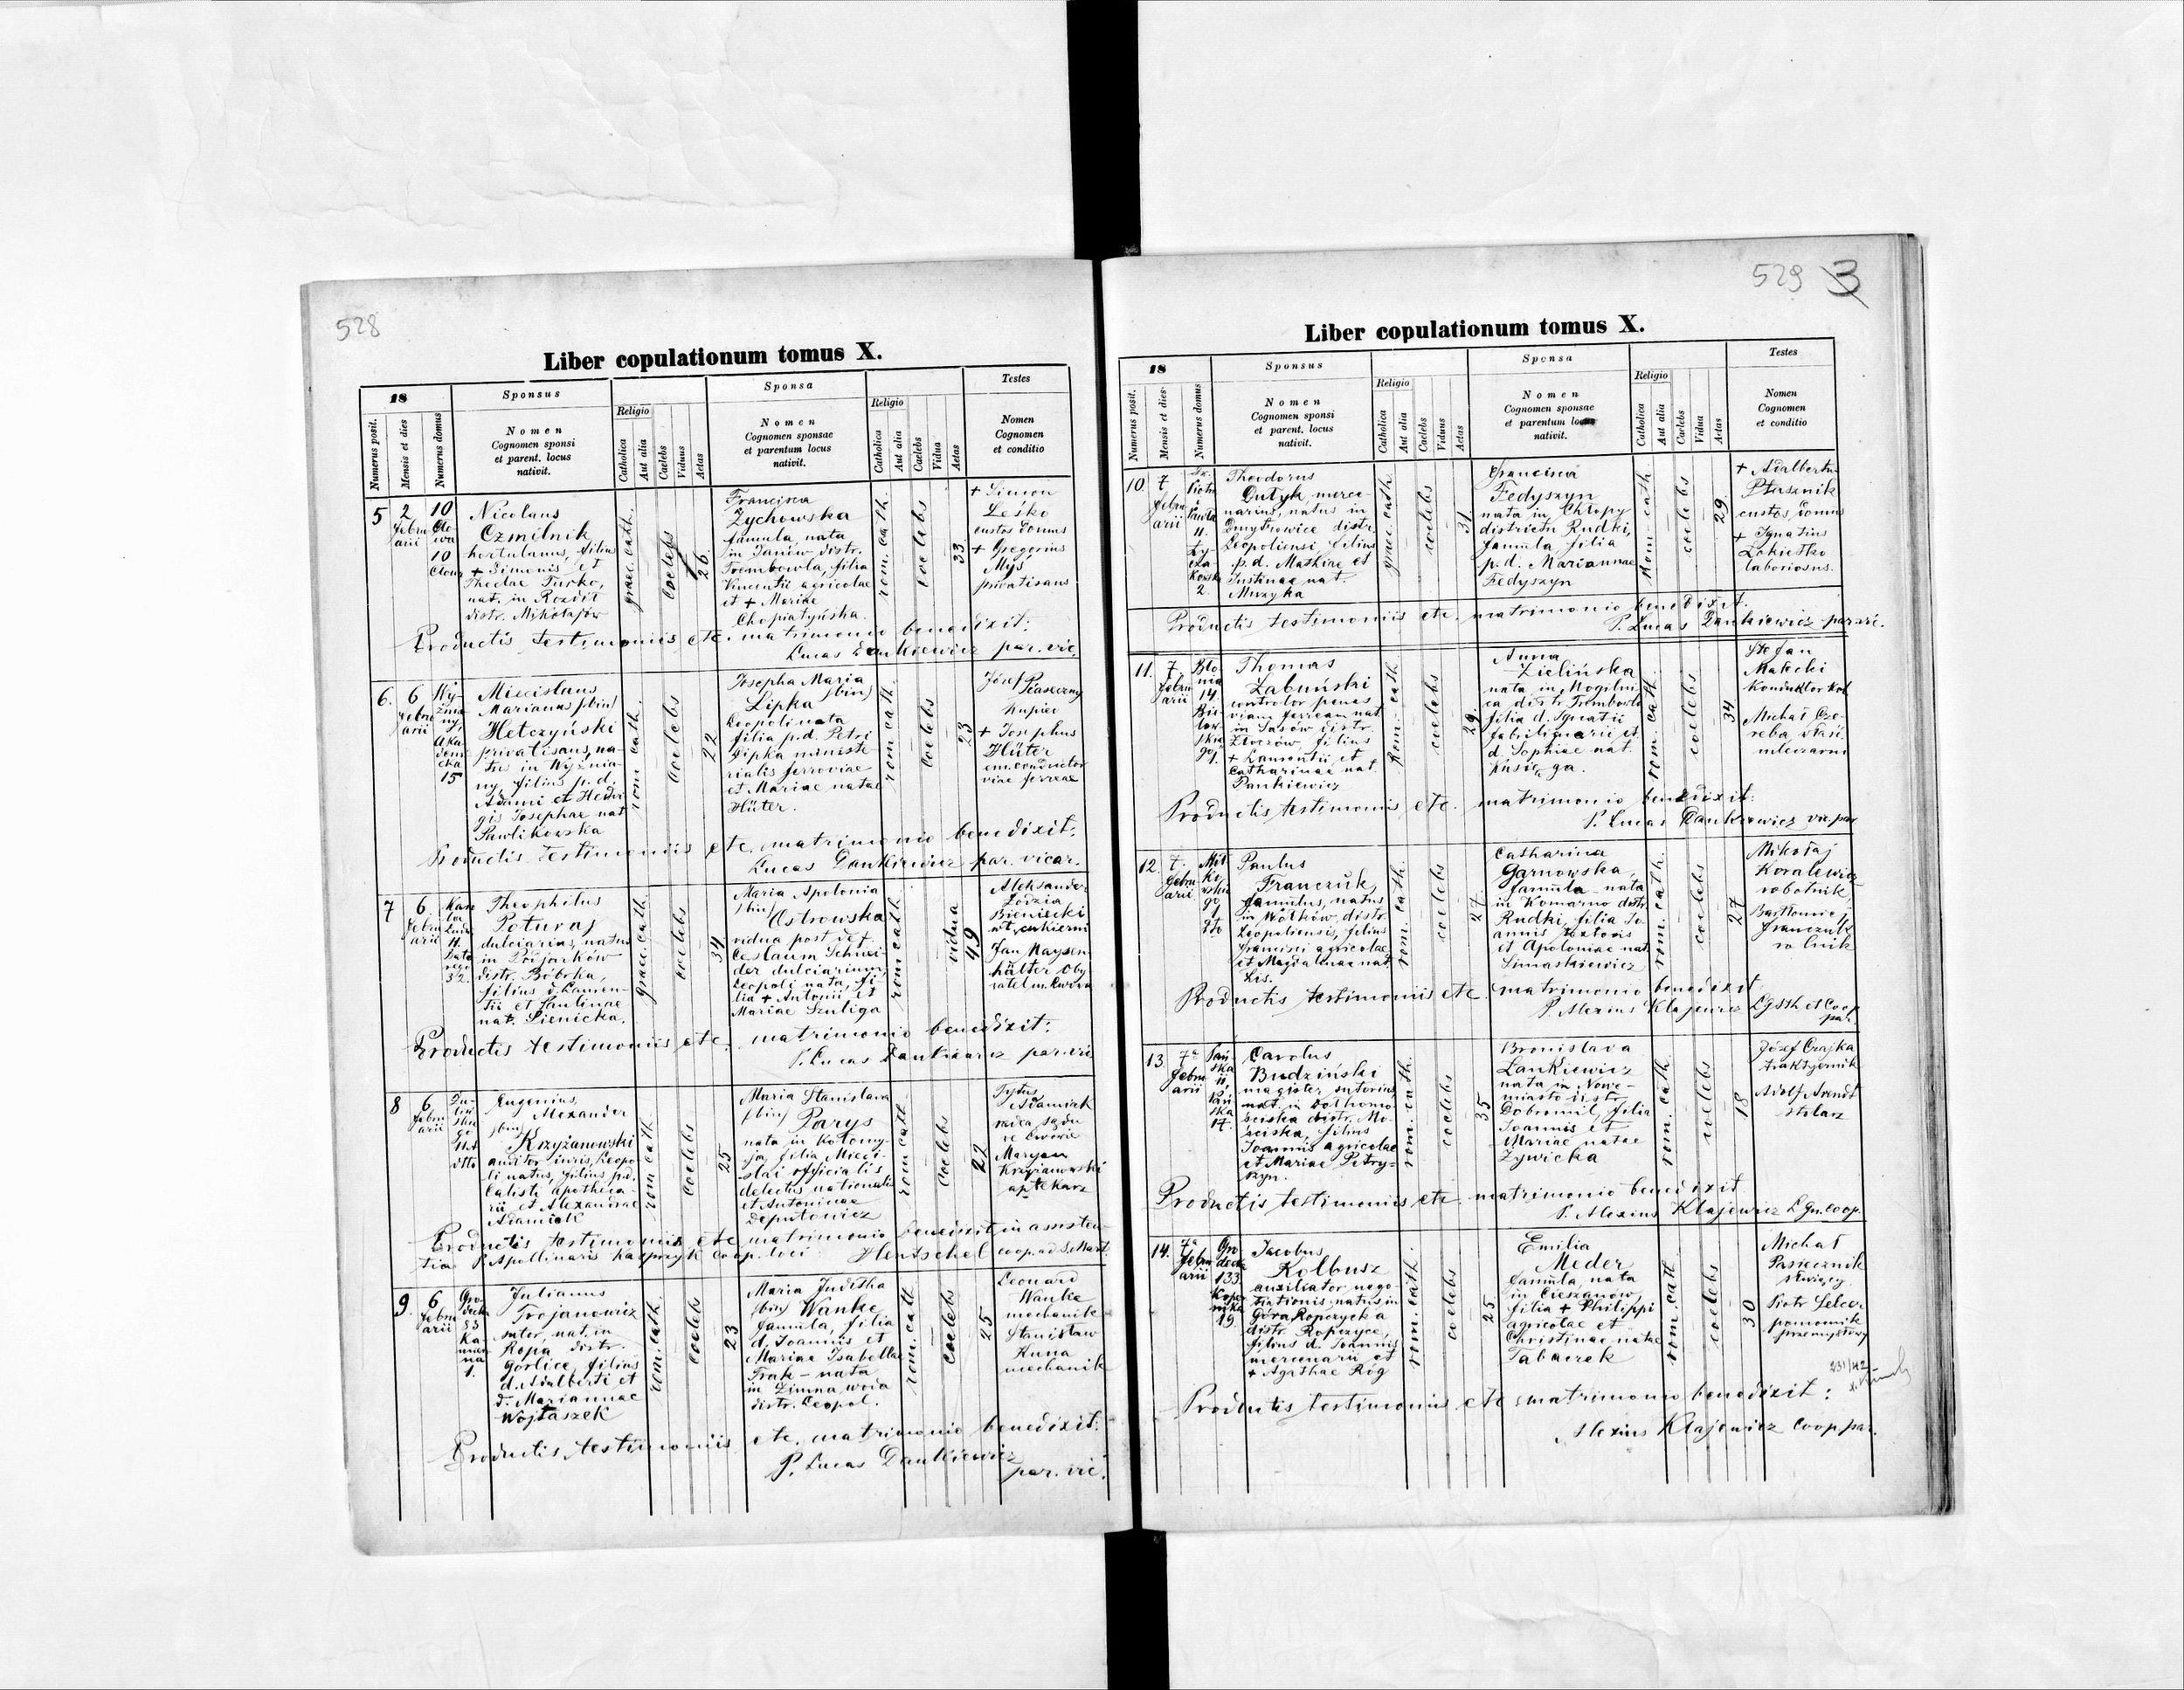 528
Liber copulationum tomus X.
18
Sponsus
Sponsa
Testes
Numerus posit.
Mensis et dies
Numerus domus
Nomen
Cognomen sponsi
et parent. locus
nativit.
Religio
Catholica
Aut alia
Caelebs
Viduus
Aetas
Nomen
Cognomen sponsae
et parentum locus
nativit.
Religio
Catholica
Aut alia
Caelebs
Vidua
Aetas
Nomen
Cognomen
et conditio
5
2
Febru
arii
10
10
Nicolaus
Czmilnik
hortulanus, filius
+ Simonis et
Theclae Turko,
nat. in Rozdół
distr. Mikołajów
graec. cath.
coelebs
26.
Francisca
Żychowska
famula, nata
in Janów distr.
Trembowla, filia
Vincentii agricolae
et + Mariae
Chopiatyńska.
rom. cath.
coelebs
33
+ Simon
Leśko
custos domus
+ Gregorius
Myś
privatisans
Productis testimoniis etc. matrimonio benedixit:
Lucas Dankiewicz par. vic.
6.
6
Febru
arii
Wy-
żnia-
ny,
Aka
dem
icka
15
Miecislaus
Marianus (bin)
Hetczyński
privatisans, na-
tus in Wyżnia-
ny, filius p.d.
Adami et Hedvi
gis Josephae nat
Pawlikowska
rom. cath.
coelebs
22
Josepha Maria
(bin)
Lipka
Leopoli nata
filia p.d. Petri
Lipka ministe-
rialis ferroviae
et Mariae natae
Hüter.
rom. cath.
coelebs
23
Józef Piaseczny
kupiec
+ Josephus
Hüter
em. conductor
viae ferreae
Productis testimoniis etc. matrimonio benedixit:
Lucas Dankiewicz par. vicar.
7
6
Febru
arii
32.
Theophilus
Poturaj
dulciarius, natus
in Podjarków
distr. Bóbrka,
filius d. Lauren-
tii et Paulinae
nat. Sienicka.
graec. cath.
coelebs
34
Maria Apolonia
(bin)
Ostrowska
vidua post def.
Ceslaum Schnei-
der dulciarium,
Leopoli nata, fi-
lia + Antonii et
Mariae Szuliga
rom. cath.
vidua
49
Aleksander
Łodzia
Bieniecki
wł. cukierni
Jan Maysen
hälter Oby
watel m. Lwowa
Productis testimoniis etc. matrimonio benedixit:
P. Lucas Dankiewicz par. vic
8
6
Febru
arii
Eugenius
Alexander
(bin)
Krzyżanowski
auditor iuris, Leopo-
li natus, filius p.d.
Calisti apotheca-
rii et Alexandrae
Adamiak
rom. cath.
coelebs
25
Maria Stanislava
(bin)
Parys
nata in Kołomy-
ja, filia Mieci-
slai officialis
delectus nationalis
et Antoninae
Deputowicz
rom. cath.
coelebs
22
Tytus
Adamiak
radca sądu
we Lwowie
Maryan
Krzyżanowski
aptekarz
Productis testimoniis etc. matrimonio benedixit in assisten-
tia P. Apollinaris Kasprzyk coop. loci Hentschel coop. ad S. Mart.
9.
6
Febru
arii
Gró
decka
83
Ka-
mien
na
1.
Julianus
Trojanowicz
sutor, nat. in
Ropa distr.
Gorlice, filius
d. Adalberti et
d. Mariannae
Wojtaszek
rom. cath.
coelebs
23
Maria Juditha
(bin) Wanke
famula, filia
d. Joannis et
Mariae Isabellae
Frak - nata
in Zimna woda
distr. Leopol.
rom. cath.
coelebs
25
Leonard
Wanke
mechanik
Stanisław
Kuna
mechanik
Productis testimoniis etc. matrimonio benedixit:
P. Lucas Dankiewicz
par. vic.
529
3
Liber copulationum tomus X.
18
Sponsus
Sponsa
Testes
Numerus posit.
Mensis et dies
Numerus domus
Nomen
Cognomen sponsi
et parent. locus
nativit.
Religio
Catholica
Aut alia
Caelebs
Viduus
Aetas
Nomen
Cognomen sponsae
et parentum locus
nativit.
Religio
Catholica
Aut alia
Caelebs
Vidua
Aetas
Nomen
Cognomen
et conditio
10.
7
Febru
arii
Theodorus
Dutyk, merce
narius, natus in
Dmytrowice distr.
Leopoliensi, filius
p.d. Mathiae et
Justinae nat.
Muzyka
graec. cath.
coelebs
31.
Francisca
Fedyszyn
nata in Chłopy
districtu Rudki,
famula, filia
p.d. Mariannae
Fedyszyn
rom. cath.
coelebs
29.
+ Adalbertus
Ptasznik
custos domus
+ Ignatius
Łokietko
laboriosus.
Productis testimoniis etc. matrimonio benedixit.
P. Lucas Dankiewicz par. vic.
11.
7
Febru
arii
Bło
nia
14.
Thomas
Zabuński
controlor penes
viam ferream nat.
in Sasów distr.
Złoczów, filius
+ Laurentii et
Catharinae nat.
Pankiewicz
rom. cath.
coelebs
29.
Anna
Zielińska
nata in Mogilni-
ca distr. Trembowla
filia d. Ignatii
fabilignarii et
d. Sophiae nat.
Księga.
rom. cath.
coelebs
34
Stefan
Małecki
Konduktor kol.
Michał Cze-
reba właś.
mleczarni
Productis testimoniis etc. matrimonio benedixit:
P. Lucas Dankiewicz vic. par
12.
7.
Febru
arii
Paulus
Franczuk,
famulus, natus
in Wołków, distr.
Leopoliensis, filius
Francisci agricolae
et Magdalenae nat.
Lis.
rom. cath.
coelebs
27.
Catharina
Garnowska,
famula nata
in Komarno distr.
Rudki, filia Jo-
annis textoris
et Apoloniae nat.
Simaskiewicz
rom. cath.
coelebs
27
Mikołaj
Koralewicz
robotnik
Bartłomiej
Franczuk
rolnik
Productis testimoniis etc. matrimonio benedixit
P. Alexius Klajewicz
13.
7a
Febru
arii
Carolus
Budziński
magister sutorius
distr. Mo-
ściska, filius
Joannis agricolae
et Mariae Petry-
szyn.
rom. cath.
coelebs
35
Bronislava
Lankiewicz
nata in Nowe-
miasto distr.
Dobromil, filia
Joannis et
Mariae natae
Żywicka
rom. cath.
coelebs
18
Józef Czajka
traktyernik
Adolf Arendt
stolarz
Productis testimoniis etc matrimonio benedixit
P. Alexius Klajewicz
14.
7a
Febru
arii
Gró
decka
133
Koper
nika
19.
Jacobus
Kolbusz
auxiliator nego-
tiationis natus in
Góra Ropczycka
distr. Ropczyce,
filius d. Joannis
mercenarii et
+ Agathae Róg
rom. cath.
coelebs
25
Emilia
Meder
famula, nata
in Cieszanów,
filia + Philippi
agricolae et
Christinae natae
Tabaczek
rom. cath.
coelebs
30
Michał
Pasiecznik
służący
Piotr Selcer
pomocnik
przemysłowy
Productis testimoniis etc matrimonio benedixit:
Alexius Klajewicz coop. par.